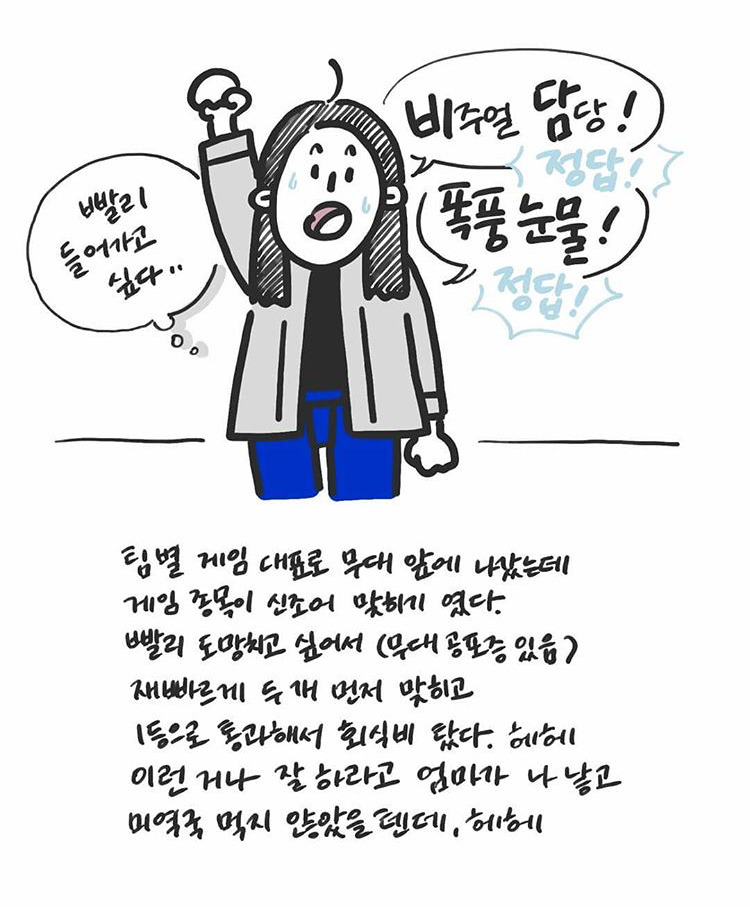 빨리
들어가고
싶다..
비주얼 담당!
정답!
폭풍 눈물!
정답!
팀별 게임 대표로 무대 앞에 나갔는데
게임 종목이 신조어 맞히기 였다.
빨리 도망치고 싶어서 (무대 공포증 있음)
재빠르게 두 개 먼저 맞히고
1등으로 통과해서 회식비 탔다. 헤헤
이런 거나 잘 하라고 엄마가 나 낳고
미역국 먹지 않았을 텐데, 헤헤